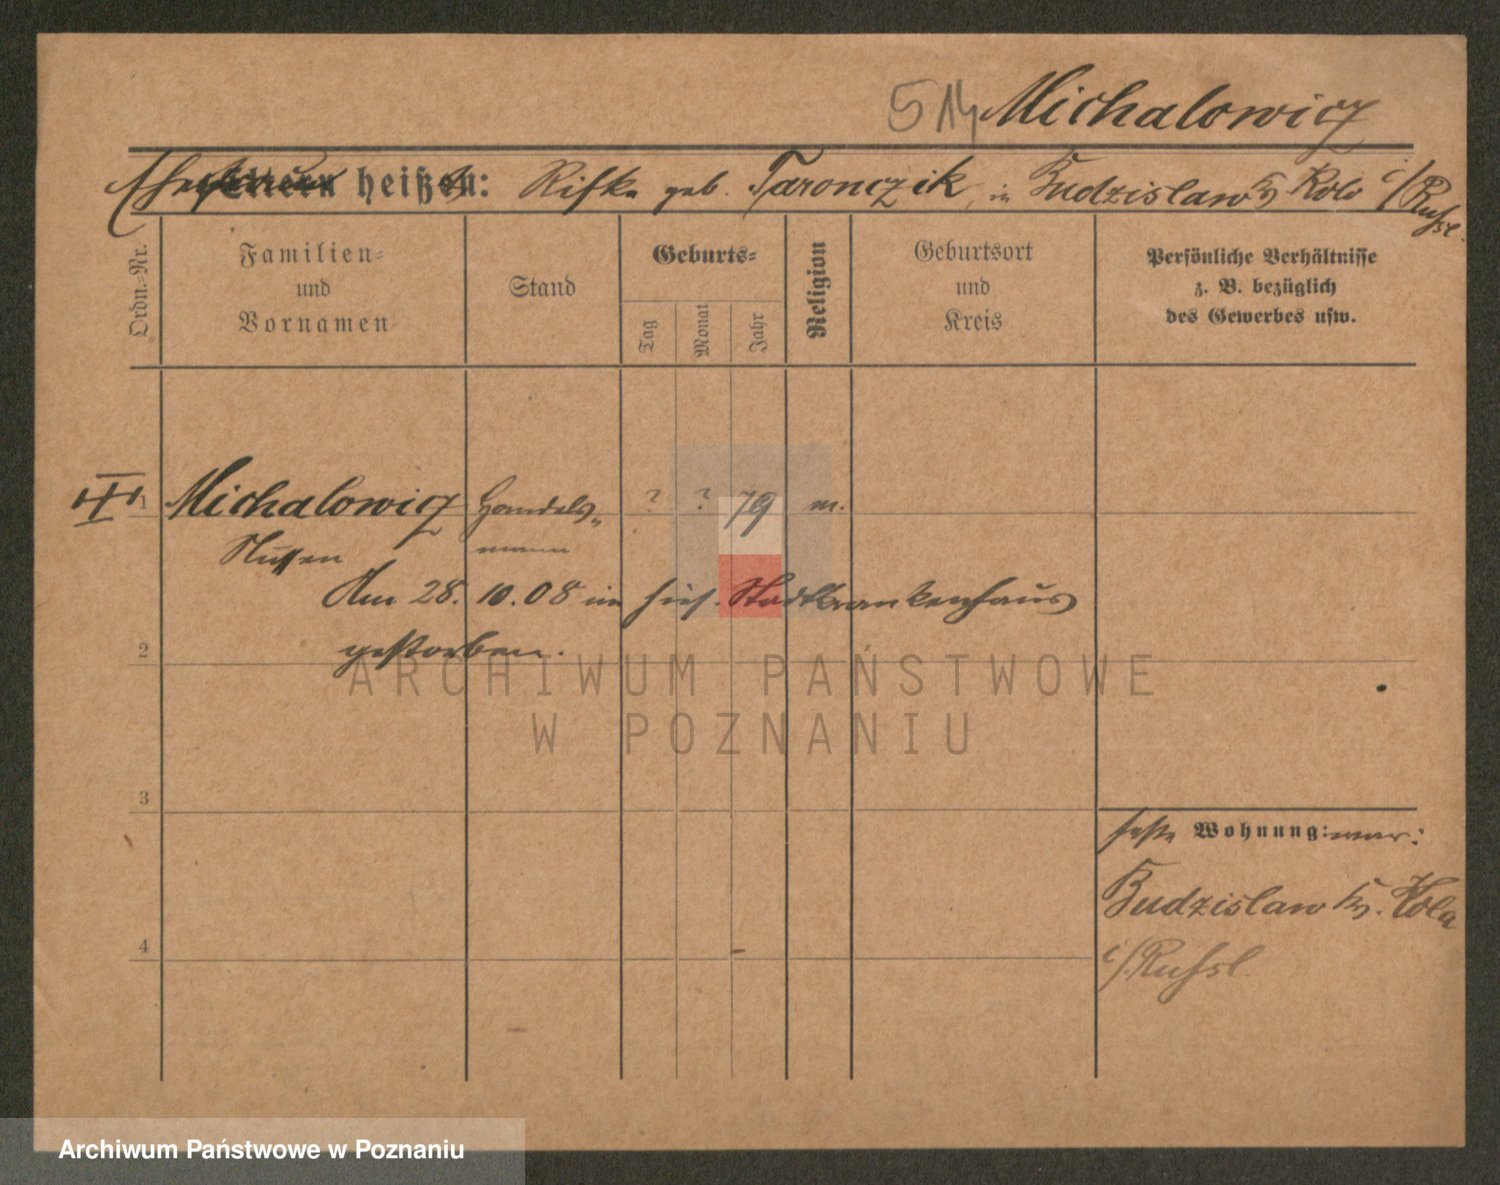 514 Michalowicz
Ehefrau Eltern heißt: Rifke geb. Taronczik, in Budzislaw Kr. Kolo i/Russl.
Ordn.-Nr.
Familien- und Vornamen
Stand
Geburts-
Tag
Monat
Jahr
Religion
Geburtsort und Kreis
Persönliche Verhältnisse z. B. bezüglich des Gewerbes usw.
1 Michalowicz Handels- ? ? 79 m.
mann
Am 28.10.08 im hies. Stadtkrankenhaus
gestorben.
2
3
4
feste Wohnung: war:
Budzislaw Kr. Kolo
i/Russl.
ARCHIWUM PAŃSTWOWE
W POZNANIU
Archiwum Państwowe w Poznaniu